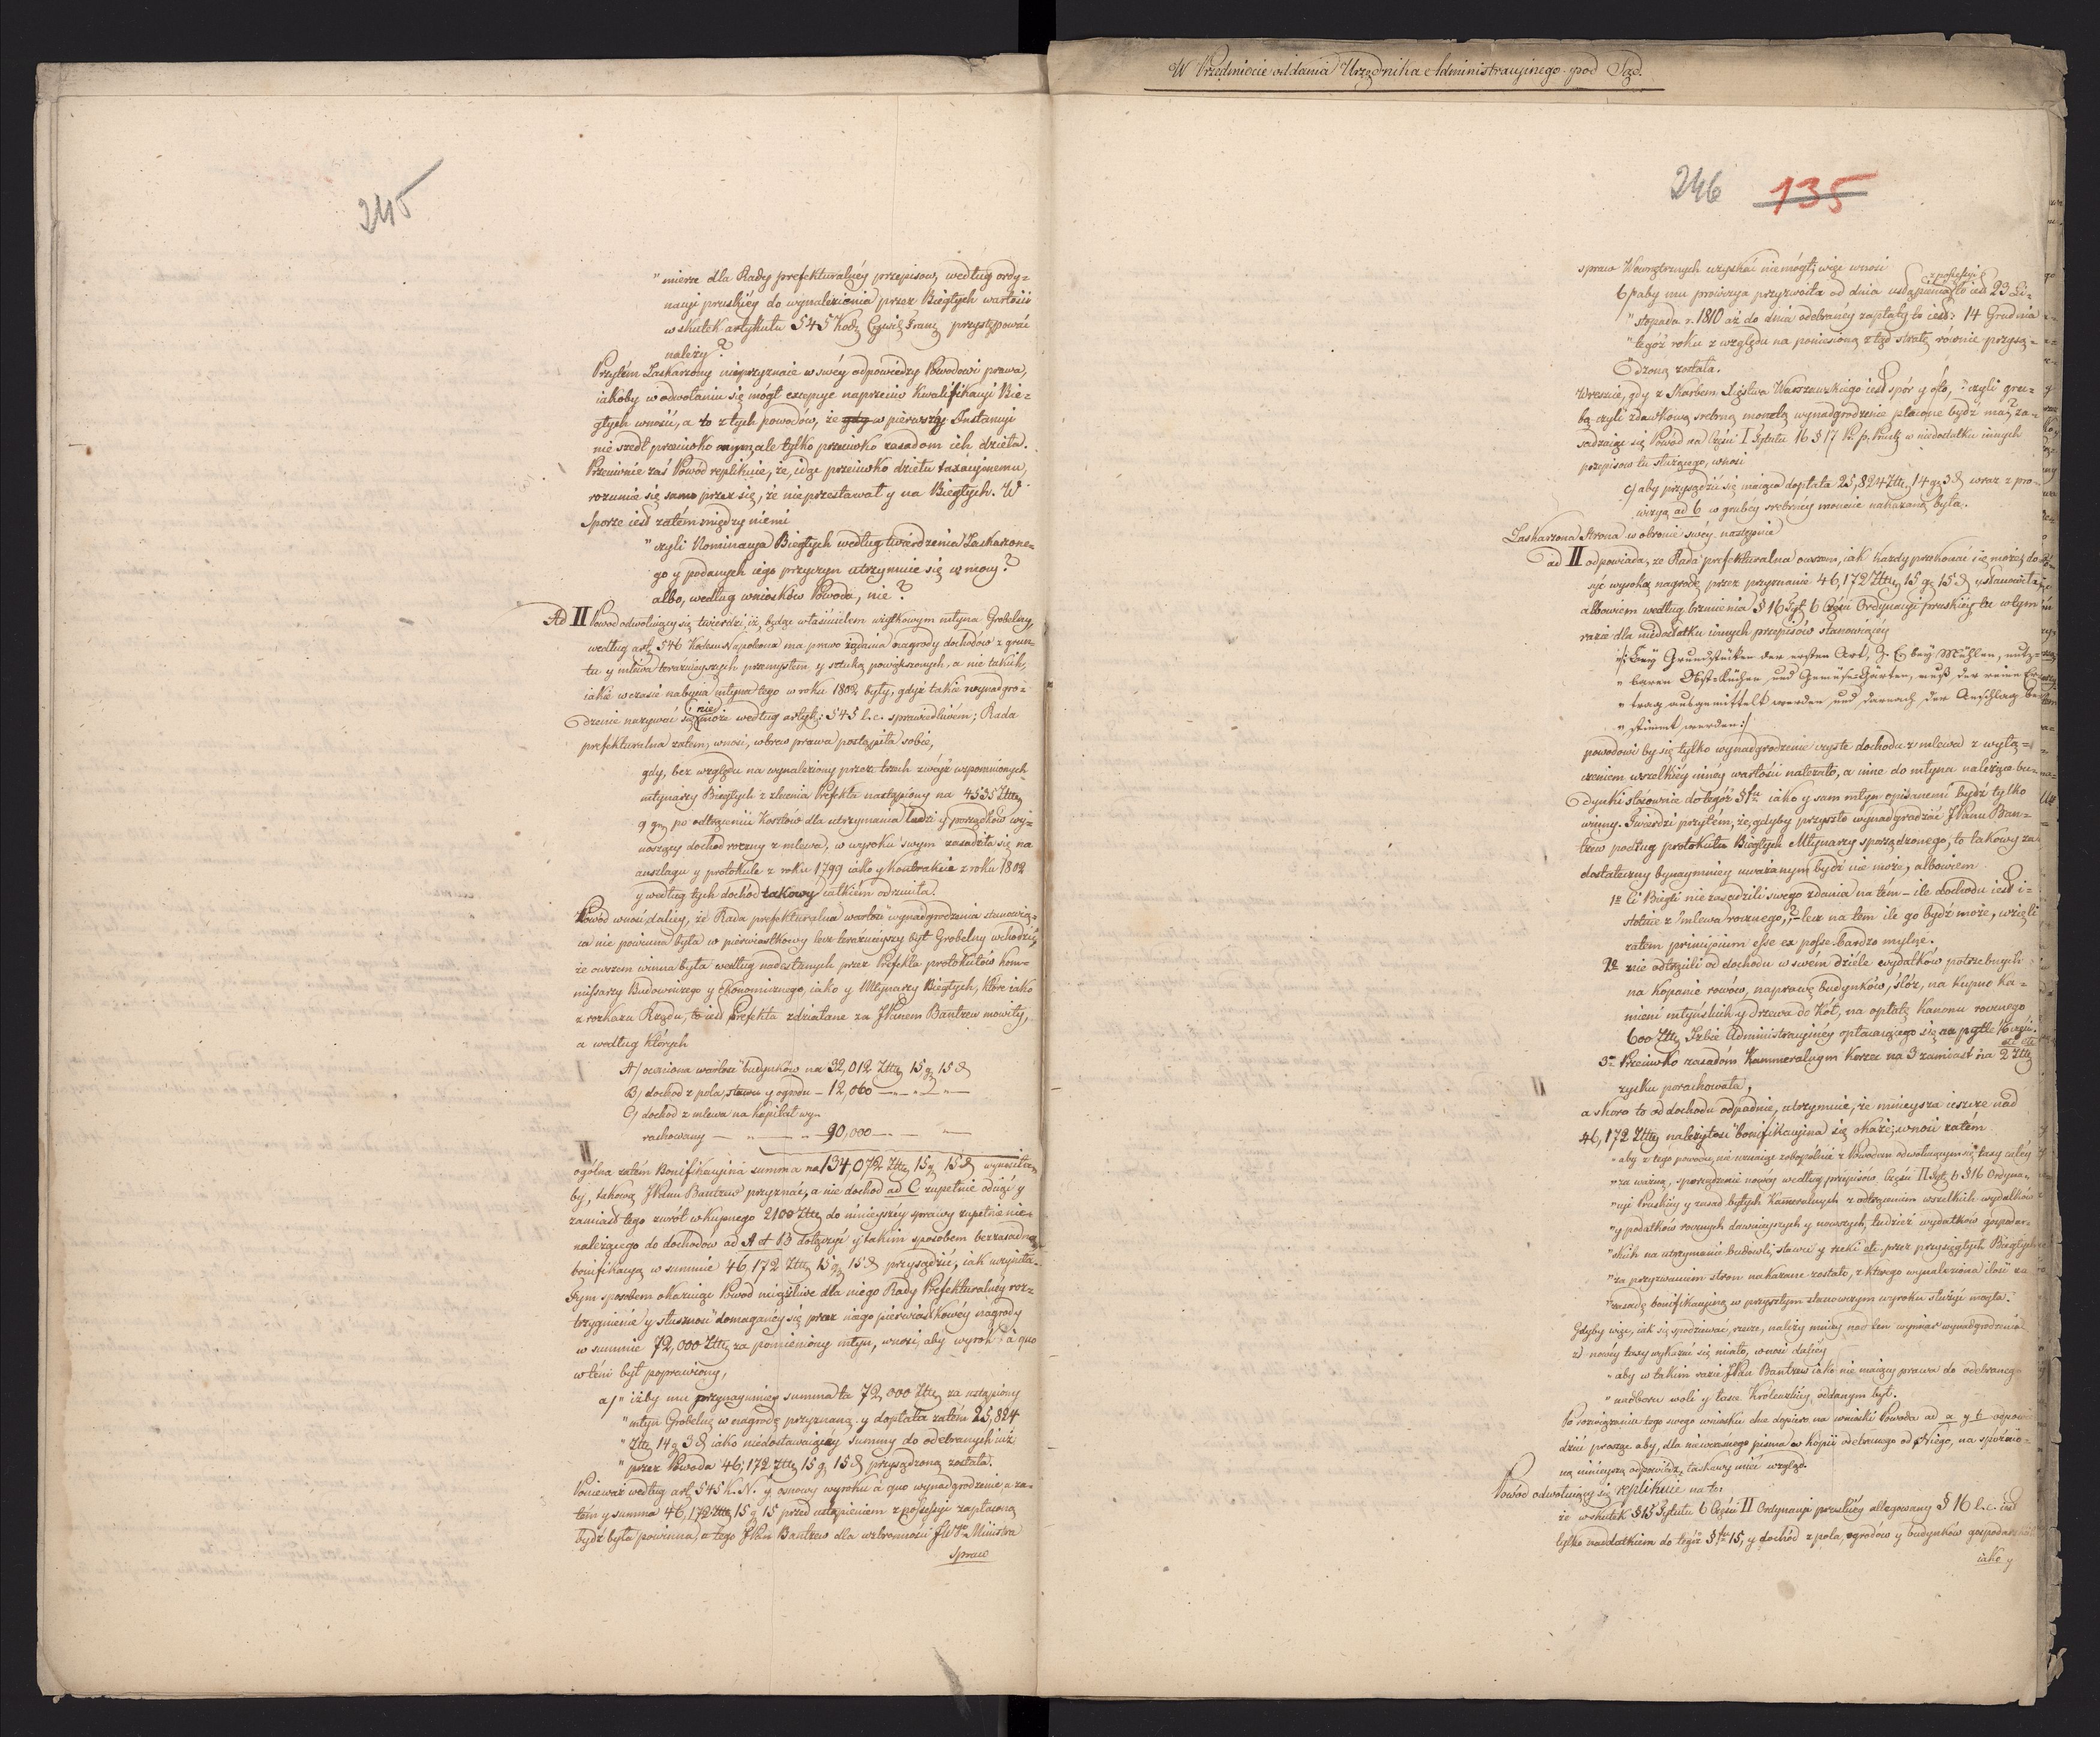 245
"mierze dla Rady prefekturalnéy przepisow, według ordy=
nacyi pruskiéy do wynalezienia przez Biegłych wartości
w skutek artykułu 545 Kod: Cywil: Franc: przystępować
należy?
Przytém Zaskarżony nieprzyznaie w swéy odpowiedzy Powodowi prawa,
iakoby w odwołaniu się mógł excepcye naprzeciw kwalifikacyi Bie=
głych wnosić, a to z tych powodów, że gdy w pierwszéy Instancyi
nie szedł przeciwko onym, ale tylko przeciwko zasadom ich dzieła.
Przeciwnie zaś Powód replikuie, że, idąc przeciwko dziełu taxacyinemu,
rozumie się samo przez się, że nieprzestawał y na Biegłych. W
Sporze iest zatém między niemi
"czyli Nominacya Biegłych według twierdzenia Zaskarzone=
go y podanych iego przyczyn utrzymuie się w mocy?
albo, według wniosków Powoda, nie?
Ad II Powod odwołuiący się twierdzi, iż, będąc właścicielem wieykowym młyna Grobelny,
według art: 546 Kodexu Napoleona ma prawo żądania nagrody dochodów z grun=
tu y mlewa teraźnieyszych przemysłem y sztuką powiększonych, a nie takich,
iakie w czasie nabycia młyna tego w roku 1802 były, gdyż takie wynadgro=
dzenie nazywać się nie może według artyk: 545 l.c. sprawiedliwém; Rada
prefekturalna zatem, wnosi, wbrew prawa postąpiła sobie,
gdy, bez względu na wynaleziony przez trzech zwyż wspomnionych
młynarzy Biegłych z zlecenia Prefekta nastąpiony na 4535 Złtt
9 gr po odtrąceniu Kosztów dla utrzymania ludzi y porządków wy=
noszący dochod roczny z mlewa, w wyroku swym zasadziła się na
anszlagu y protokule z roku 1799 iako y Kontrakcie z roku 1802
y według tych dochód takowy całkiém odrzuciła.
Powód wnosi daléy, że Rada prefekturalna wartość wynadgrodzenia stanowią=
ca nie powinna była w pierwiastkowy lecz teraźnieyszy byt Grobelny wchodzić,
że owszem winna była według nadesłanych przez Prefekta protokułów kom=
missarzy Budowniczego y Ekonomicznego, iako y Młynarzy Biegłych, które iako
z rozkazu Rządu, to iest Prefekta zdziałane za JPanem Bantzew mowiły,
a według których
A/ oceniona wartość budynków na 32,012 Złtt 15 g 15 d
B/ dochod z pola, stawu y ogrodu – 12,060 –„–„–
C/ dochod z mlewa na kapitał wy=
rachowany — „ — „ 90,000 — „ —
ogólna zatém Bonifikacyina summa na 134,072 Złtt 15 g 15 d wynosiła
by, takową JPanu Bantzew przyznać, a nie dochod ad C zupełnie odiąć y
zamiast tego zwrót wkupnego 2100 Złtt do ninieyszéy sprawy zupełnie nie=
należącego do dochodów ad A et B dołączyć y takim sposobem bezzasadną
bonifikacyą w summie 46,172 Złtt 15 g 15 d przysądzić, iak uczyniła.
Tym sposobem okazuiąc Powod uciążliwe dla niego Rady Prefekturalnéy roz=
trzygnienie y słuszność domaganéy się przez niego pierwiastkowéy nagrody
w summie 72,000 Złtt za pomieniony młyn, wnosi, aby wyrok à quo
w tém był poprawiony,
a/ "iżby mu przynaymniéy summa ta 72,000 Złtt za ustąpiony
"młyn Grobelną w nagrodę przyznaną y dopłata zatém 25,824
"Złtt 14 g 3 d iako niedostawaiącéy summy do odebranych iuż
"przez Powoda 46,172 Złtt 15 g 15 d przysądzoną została.
Ponieważ według art: 545 K. N. y osnowy wyroku à quo wynadgrodzenie, a za=
tém y summa 46,172 Złtt 15 g 15 przed ustąpieniem z possessyi zapłaconą
bydź była powinna, a tego JPan Bantzew dla wzbronności JW Ministra
spraw
W Przedmiocie oddania Urzędnika Administracyinego pod Sąd.
246 135
spraw Wewnętrznych uzyskać nie mógł; więc wnosi
b/ aby mu prowizya przyzwoita od dnia ustąpienia z possessyi to iest 23 Li=
"stopada r. 1810 aż do dnia odebranéy zapłaty to iest: 14 Grudnia
"tegoż roku z względu na poniesioną z tąd stratę równie przysą=
dzoną została.
Wreszcie, gdy z Skarbem Xięstwa Warszawskiego iest spór y oto, "czyli gru=
bą czyli zdawkową srebrną monetą wynadgrodzenie płacone bydź ma? za=
sadzaiąc się Powod na Części I Tytule 16 § 17 Pr: p: Prusk: w niedostatku innych
przepisow tu służącego, wnosi
c/ aby przysądzić się maiąca dopłata 25,824 Złtt 14 g 3 d wraz z pro=
wizyą ad b w grubéy srebrnéy monecie nakazaną była.
Zaskarzona Strona w obronie swéy następnie
ad II odpowiada, że Rada prefekturalna owszem, iak każdy przekonać się może, do=
syć wysoką nagrodę przez przyznanie 46,172 Złtt 15 g 15 d ustanowiła,
albowiem według brzmienia § 16 Tyt: 6 Części Ordynacyi pruskiéy tu w tym
razie dla niedostatku innych przepisów stanowiącéy
/: Bey Grundstücken der ersten Art, z. E. bey Mühlen, nutz=
" baren Obst= Küchen und Gemüse=Gärten, muß der reine Er=
" trag ausgemittelt werden und darnach der Anschlag be=
" stimmt werden :/
powodowi by się tylko wynadgrodzenie czyste dochodu z mlewa z wyłą=
czeniem wszelkiéy innéy wartości należało, a inne do młyna należące bu=
dynki stósownie do tegóż §fu iako y sam młyn opisanemi bydź tylko
winny. Twierdzi przytem, że, gdyby przyszło wynadgradzać JPanu Ban=
tzew podług protokułu Biegłych Młynarzy sporządzonego, to takowy za
dostateczny bynaymniéy uważanym bydź nie może, albowiem
1o Ci Biegli nie zasadzili swego zdania na tém – ile dochodu iest i=
stotnie z mlewa rocznego,? – lecz na tem ile go bydź może, wzięli
zatem principium esse ex posse bardzo mylne.
2o nie odtrącili od dochodu w swém dziele wydatków potrzebnych
na kopanie rowów, naprawę budynków, slóz, na kupno ka=
mieni młyńskich y drzewa do kół, na opłatę kanonu rocznego
600 Złtt Izbie Administracyinéy opłacaiącego się
3o Przeciwko zasadóm Kammeralnym korzec na 3 zamiast na 2 Złtt
zysku porachowała,
a skoro to od dochodu odpadnie, utrzymuie, że mnieysza ieszcze nad
46,172 Złtt należytość bonifikacyina się okaże; wnosi zatém
"aby z tego powodu, nie uznaiąc zobopólnie z Powodem odwołuiącym się taxy całéy
"za ważną, sporządzenie nowéy według przepisów Części II Tyt: 6 § 16 Ordyna=
"cyi Pruskiéy y zasad byłych Kameralnych z odtrąceniem wszelkich wydatków
"y podatków rocznych dawnieyszych y nowszych, tudzież wydatków gospodar=
"skich na utrzymanie budowli, stawu y rzeki etc. przez przysięgłych Biegłych
"za przyzwaniem stron nakazane zostało, z którego wynaleziona ilość za
"zasadę bonifikacyiną w przyszłym stanowczym wyroku służyć maiąca.
Gdyby więc, iak się spodziewać, rzecze, należy mniéy nad ten wymiar wynadgrodzenia
z nowéy taxy wykazać się miało, wnosi daléy
"aby w takim razie JPan Bantzew iako nie maiący prawa do odebranego
"nadboru woli y łasce Królewskiéy oddanym był.
Po rozwiązaniu tego swego wniosku chce dopiero na wnioski Powoda ad a y b odpowie=
dzieć prosząc aby, dla niewczesnego pisma w kopii odebranego od Niego, na spóźnio=
ną ninieyszą odpowiedź łaskawy mieć wzgląd.
Powód odwołuiący się replikuie na to:
że w skutek § 15 Tytułu 6 Części II Ordynacyi pruskiéy allegowany § 16 l.c. iest
tylko naddatkiem do tegóż §fu 15, y dochód z pola, ogrodów y budynków gospodarskich
iako y